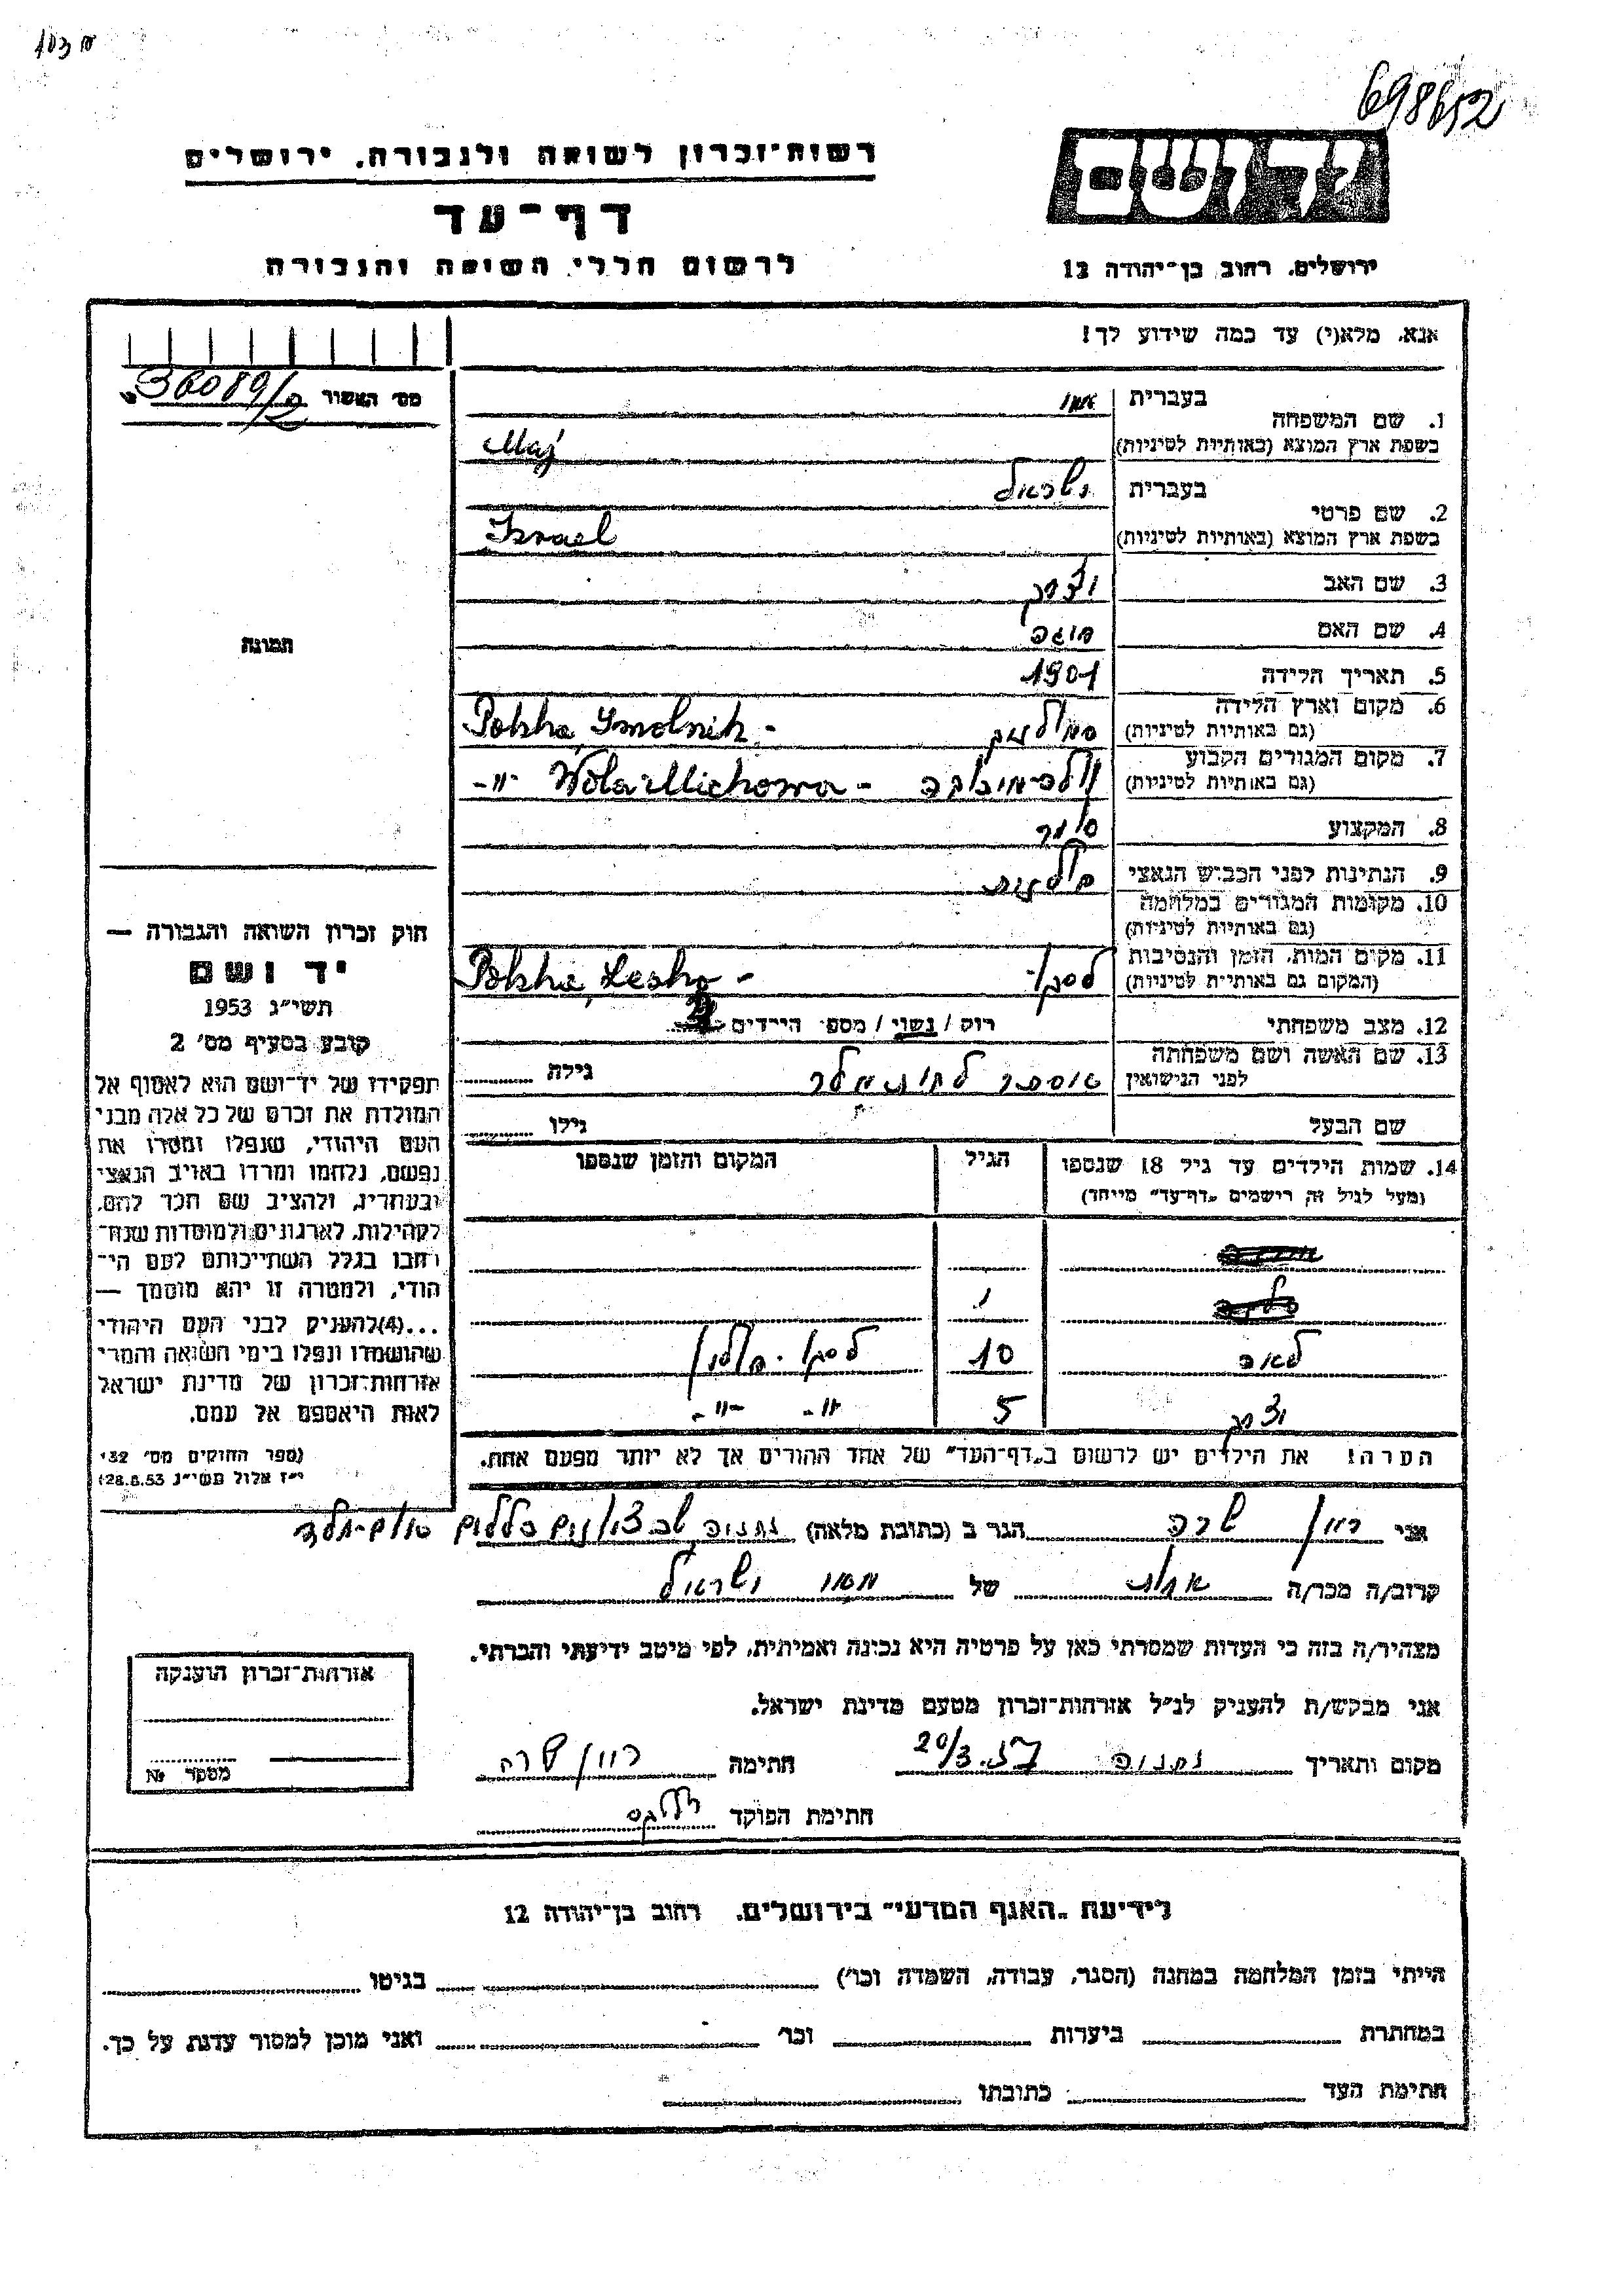 698652
רשות־זכרון לשואה ולגבורה. ירושלים
דף־עד
לרשום חללי השואה והגבורה
יד ושם
ירושלים, רחוב בן־יהודה 12
אנא, מלא(י) עד כמה שידוע לך!
מס׳ האשור 36089/2
1. שם המשפחה
בעברית
בשפת ארץ המוצא (באותיות לטיניות) Maj
2. שם פרטי
בעברית ישראל
בשפת ארץ המוצא (באותיות לטיניות) Israel
3. שם האב יצחק
4. שם האם
5. תאריך הלידה 1901
6. מקום וארץ הלידה
(גם באותיות לטיניות) סמולניק - Polska, Smolnik
7. מקום המגורים הקבוע
(גם באותיות לטיניות) - Wola Michowa -"-
8. המקצוע סוחר
9. הנתינות לפני הכבוש הנאצי פולנית
10. מקומות המגורים במלחמה
(גם באותיות לטיניות)
11. מקום המות, הזמן והנסיבות
(המקום גם באותיות לטיניות) לסקו - Polska, Lesko
12. מצב משפחתי רוק / נשוי / מספר הילדים
13. שם האשה ושם משפחתה
לפני הנישואין אסתר גילה
שם הבעל גילו
14. שמות הילדים עד גיל 18 שנספו הגיל המקום והזמן שנספו
(מעל לגיל זה רישמים "דף־עד" מייחד)
לאה 10 לסקו - פולין
יצחק 5 -"- -"-
הערה! את הילדים יש לרשום ב"דף־העד" של אחד ההורים אך לא יותר מפעם אחת.
תמונה
חוק זכרון השואה והגבורה —
יד ושם
תשי״ג 1953
קובע בסעיף מס׳ 2
תפקידו של יד־ושם הוא לאסוף אל
המולדת את זכרם של כל אלה מבני
העם היהודי, שנפלו ומסרו את
נפשם, נלחמו ומרדו באויב הנאצי
ובעוזריו, ולהציב שם וזכר להם,
לקהילות, לארגונים ולמוסדות שנח־
רבו בגלל השתייכותם לעם הי־
הודי, ולמטרה זו יהא מוסמך —
...(4)להעניק לבני העם היהודי
שהושמדו ונפלו בימי השואה והמרי
אזרחות־זכרון של מדינת ישראל
לאות היאספם אל עמם.
(ספר החוקים מס׳ 132
י״ז אלול תשי״ג 28.8.53)
אני רוזן שרה הגר ב (כתובת מלאה) נתניה
קרוב/ה מכר/ה אחות של מאי ישראל
מצהיר/ה בזה כי העדות שמסרתי כאן על פרטיה היא נכונה ואמיתית, לפי מיטב ידיעתי והכרתי.
אני מבקש/ת להעניק לנ״ל אזרחות־זכרון מטעם מדינת ישראל.
מקום ותאריך נתניה 20/3 חתימה רוזן שרה
חתימת הפוקד
אזרחות־זכרון הוענקה
מספר №
לידיעת "האגף המדעי" בירושלים, רחוב בן־יהודה 12
הייתי בזמן המלחמה במחנה (הסגר, עבודה, השמדה וכו׳) בגיטו
במחתרת ביערות וכו׳ ואני מוכן למסור עדות על כך.
חתימת העד כתובתו